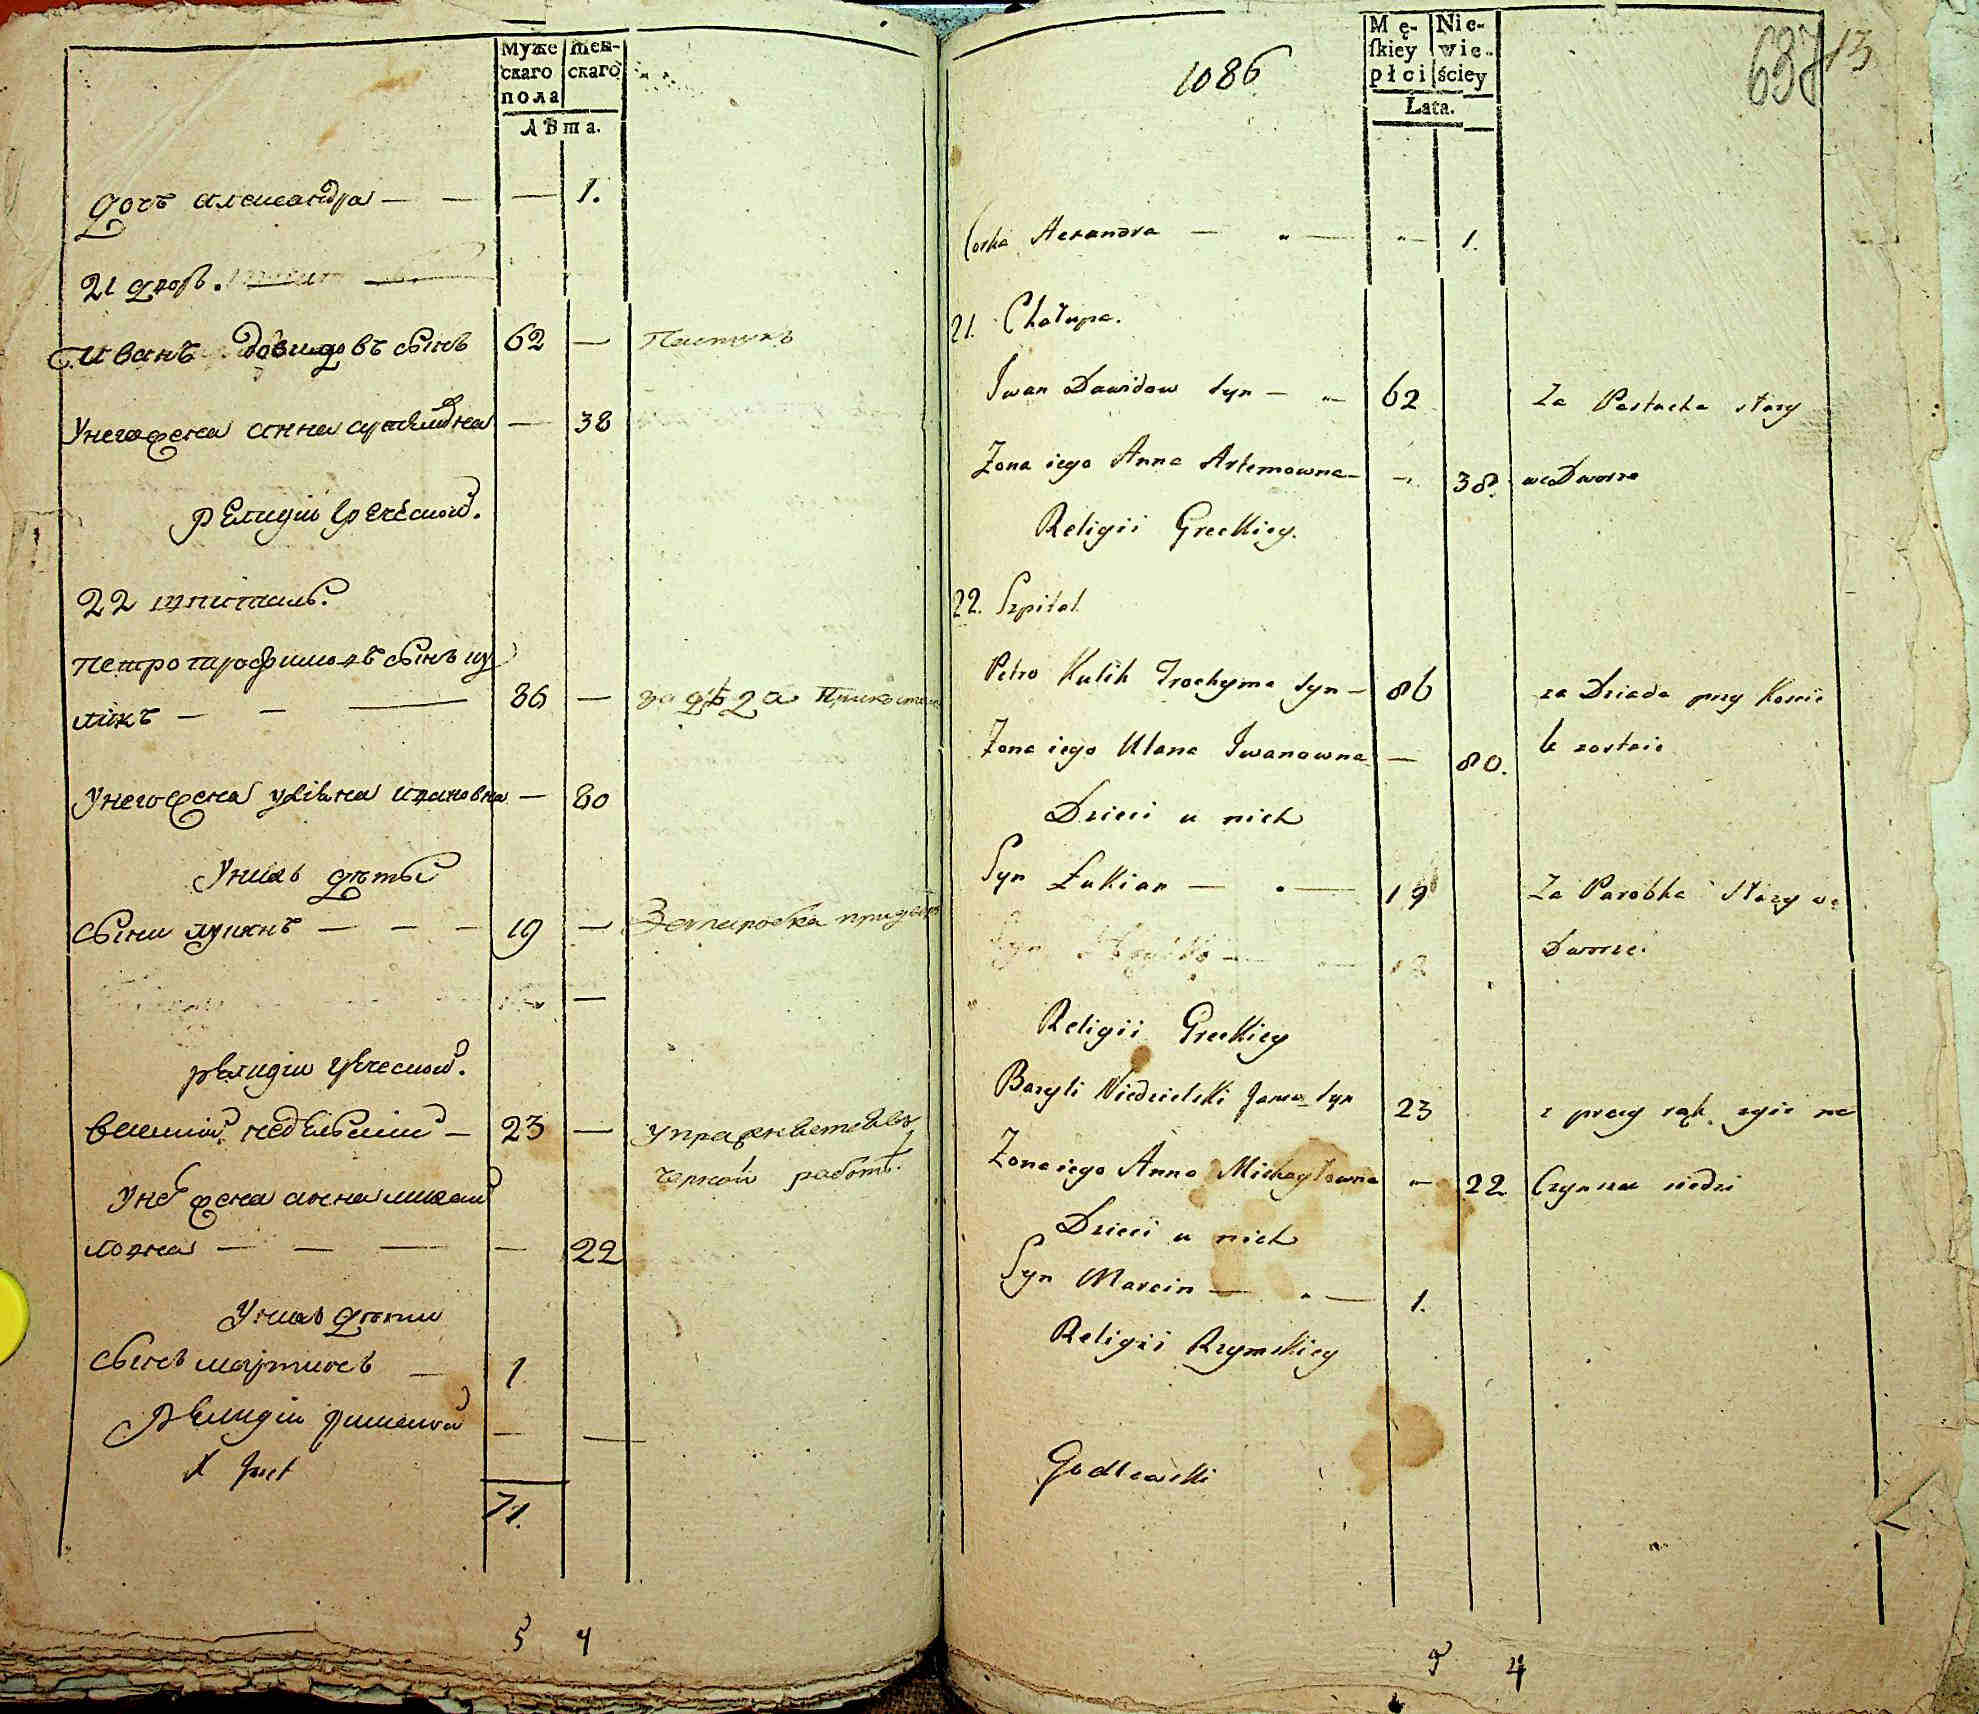 Муже
скаго
пола
Жен-
скаго
Лѣта.
дочь александра — — — 1.
21 двор.
Иванъ довидовъ сынъ 62 — Пастухъ
Унего жена анна артемовна — 38
религіи греческой.
22 шпиталь.
петро трофимовъ сынъ ку
ликъ — — — 86 — за дѣда При костеле
Унего жена уліяна ивановна — 80
Унихъ дѣты
сынъ лукянъ — — — 19 — За паробка при дворѣ
религіи греческой.
василий недѣльский — 23 —
черной работѣ.
Унег жена анна михай
ловна — — — — 22
Унихъ дѣти
сынъ мартинъ — 1
Религіи римской
71.
5 4
1086
637 13
Mę-
ſkiey
płci
Nie-
wie-
ściey
Lata.
Corka Alexandra — " — " — 1.
21. Chałupa.
Iwan Dawidow syn — " 62 Za Pastucha słuzy
Zona iego Anna Artemowna — " 38. we Dworze
Religii Greckiey.
22. Szpital
Petro Kulik Trochyma syn — 86 za Dziada przy Koscie
Zona iego Ulana Iwanowna — 80. le zostaie
Dzieci u nich
Syn Łukian — " — 19 Za Parobka słuzy we
Dworze.
Syn 12
Religii Greckiey
Bazyli Niedzielski Jana syn 23 z pracy rąk zyie na
Zona iego Anna Michayłowna " 22 Czynszu siedzi
Dzieci u nich
Syn Marcin — " — 1.
Religii Rzymskiey
Godlewski
5 4